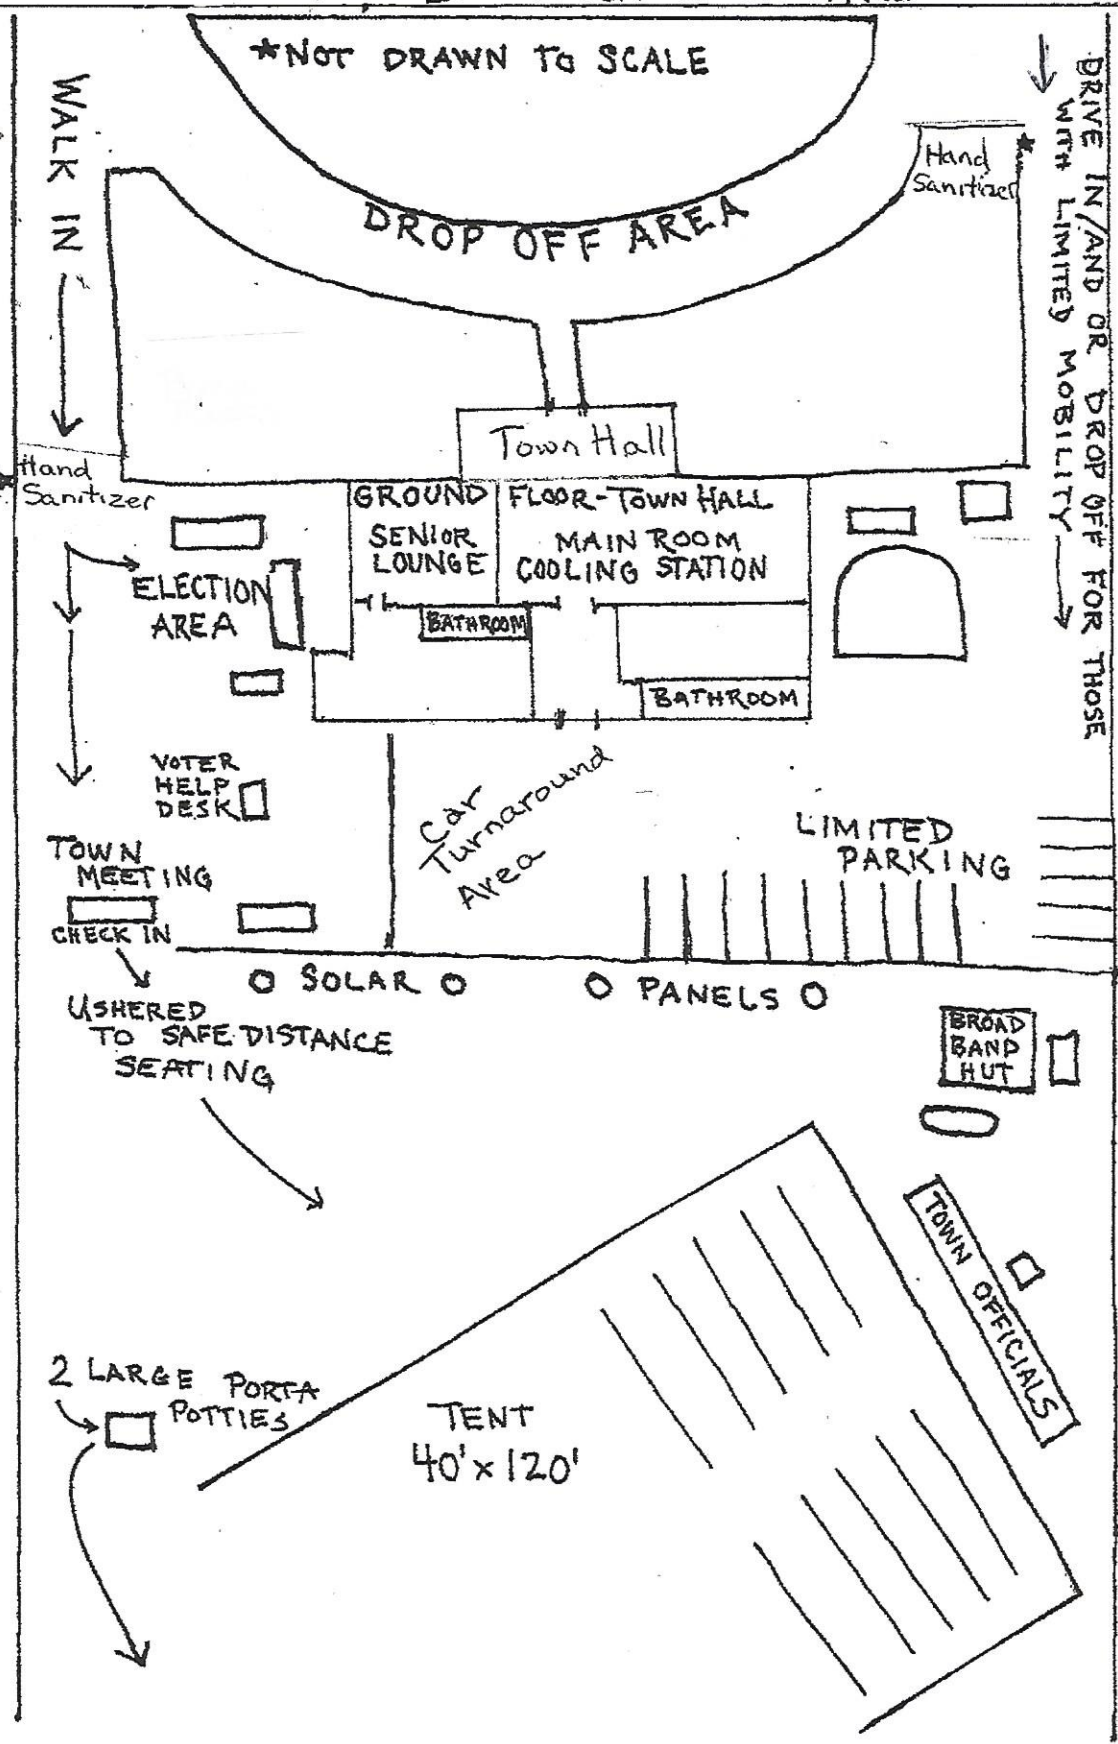 *NOT DRAWN TO SCALE
WALK IN
DRIVE IN/AND OR DROP OFF FOR THOSE
WITH LIMITED MOBILITY
Hand
Sanitizer
DROP OFF AREA
Town Hall
Hand
Sanitizer
GROUND FLOOR-TOWN HALL
SENIOR
LOUNGE
MAIN ROOM
COOLING STATION
ELECTION
AREA
BATHROOM
BATHROOM
VOTER
HELP
DESK
Car
Turnaround
Area
LIMITED
PARKING
TOWN
MEETING
CHECK IN
SOLAR PANELS
USHERED
TO SAFE DISTANCE
SEATING
BROAD
BAND
HUT
TOWN OFFICIALS
2 LARGE PORTA
POTTIES
TENT
40'x120'